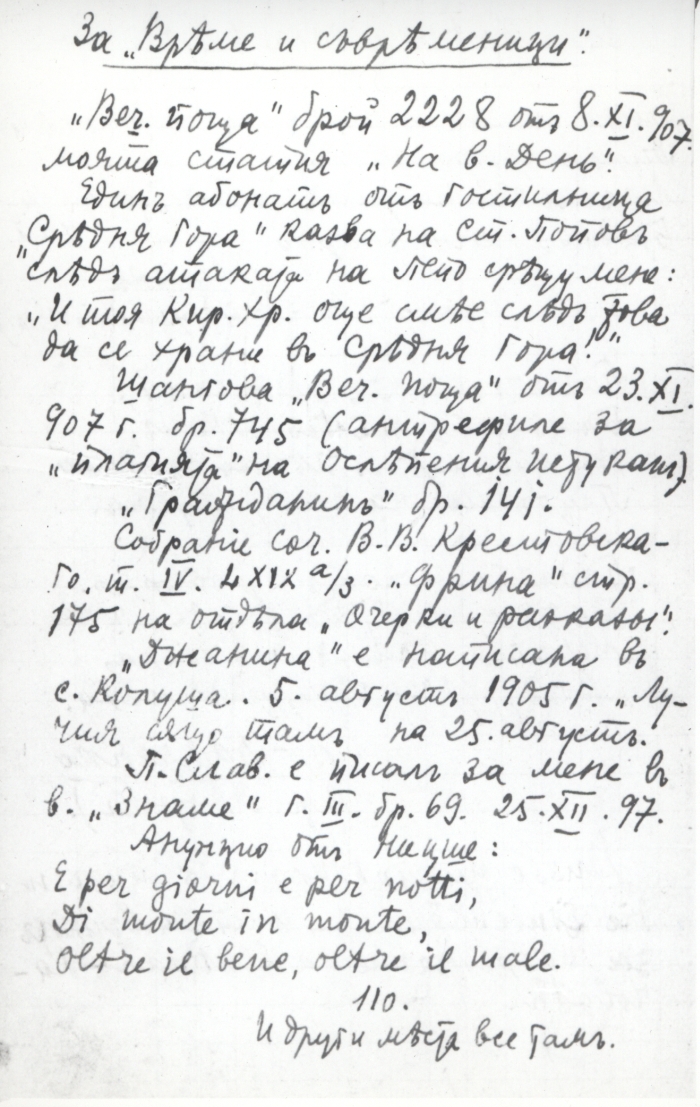 За „Врѣме и съврѣменици“.
„Веч. поща“ брой 2228 отъ 8.XI.907.
моята статия „На в. День“.
Единъ абонатъ отъ гостилница
„Срѣдня Гора“ казва на Ст. Поповъ
слѣдъ атаката на Пето срѣщу мене:
„И тоя Кир. Хр. още смѣе слѣдъ това
да се храни въ Срѣдня Гора!“
Шангова „Веч. Поща“ отъ 23.XI.
907 г. бр. 745 (антрефиле за
„плагиата“ на Ослѣпения Истуканъ)
„Гражданинъ“ бр. 141.
Собрание соч. В. В. Крестовска-
го. т. IV. LXIX а/3. „Фрина“ стр.
175 на отдѣла „Очерки и разказы“.
„Джанина“ е написана въ
с. Копуща. 5. августъ 1905 г. „Лу-
чия също тамъ на 25. августъ.
П. Слав. е писалъ за мене въ
в. „Знаме“ г. III. бр. 69. 25.XII.97.
Анунцио отъ Ницше:
E per giorni e per notti,
Di monte in monte,
oltre il bene, oltre il male.
110.
И други мѣста все тамъ.